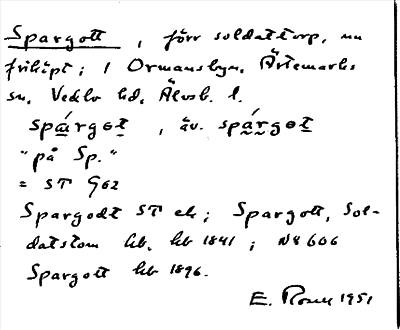 Spargott, förr soldattorp, nu
friköpt; i Ormansbyn, Ärtemarks
sn, Vedbo hd, Älvsb. l.
spárgɵt, äv. spárgɵt
"på Sp."
= ST G62
Spargodt ST ek; Spargott, Sol-
datstom hb. hb 1841; No 606
Spargott hb 1896.
E. 1951